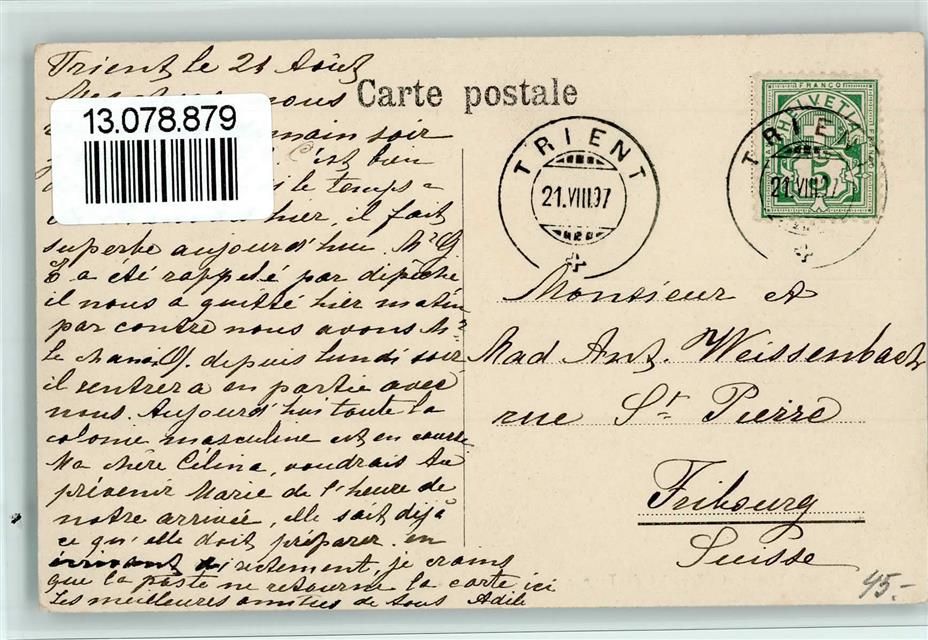 Trient le 21 Août
nous
demain soir
C'est bien
le temps
hier, il fait
superbe aujourd'hui Mr G
a été rappelé par dépêche
il nous a quitté hier matin
par contre nous avons Mr
le depuis lundi soir
il rentrera en partie avec
nous. Aujourd'hui toute la
colonie masculine est en course
Ma chère Célina, voudrais tu
prévenir Marie de l'heure de
notre arrivée, elle sait déjà
ce qu'elle doit préparer. en
écrivant directement, je crains
que la poste ne retourne la carte ici
Les meilleures amitiés de tous Adèle
13.078.879
Carte postale
TRIENT
21.VIII.07
TRIENT
21.VIII.07
FRANCO
HELVETIA
5
Monsieur et
Mad Ant. Weissenbach
rue St Pierre
Fribourg
Suisse
45.-